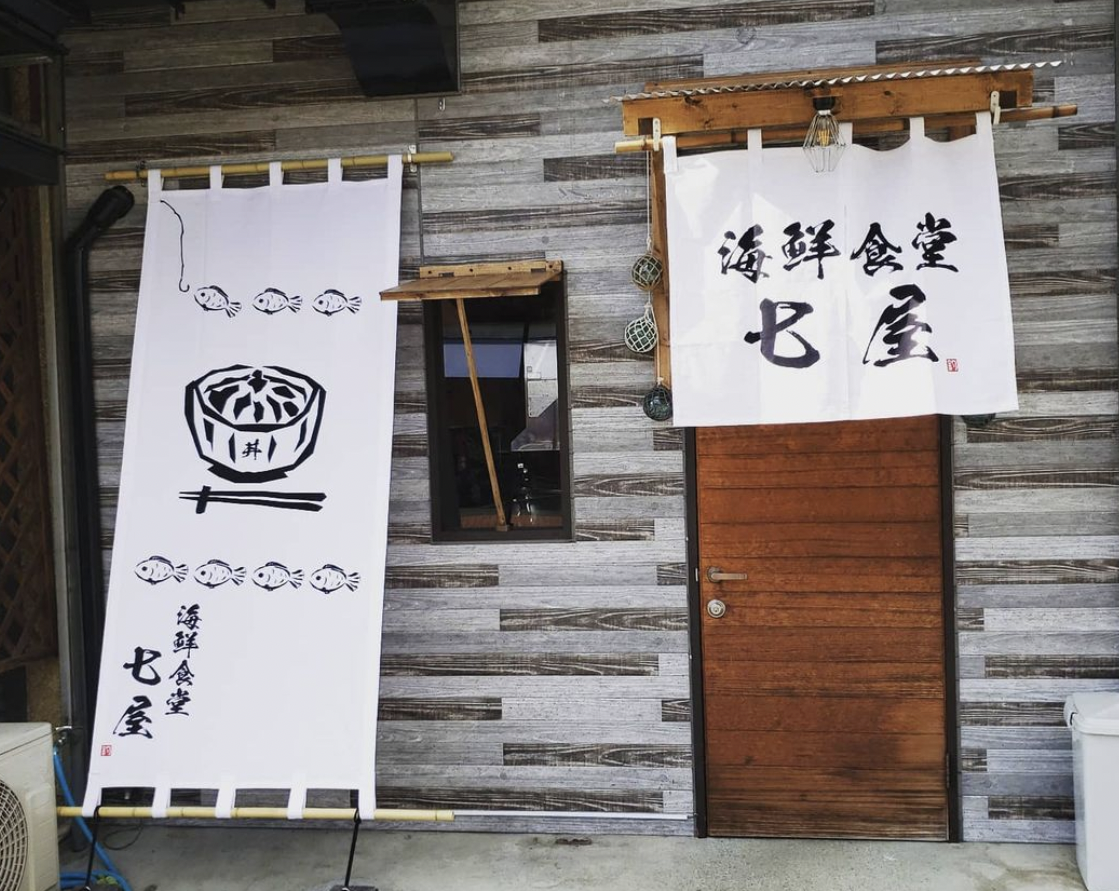 海鮮食堂
七屋
丼
海鮮食堂
七屋